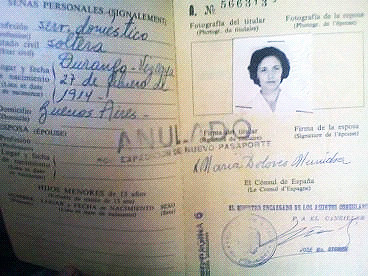 SEÑAS PERSONALES (SIGNALEMENT)
serv. doméstico
soltera
Durango - Vizcaya
27 de febrero de
1914 -
Domicilio
Buenos Aires -
ESPOSA (ÉPOUSE)
HIJOS MENORES de 15 años
LUGAR y FECHA de NACIMIENTO
SEXO
A. No 566313
Fotografía del titular
(Photogr. du titulaire)
Fotografía de la esposa
(Photogr. de l'épouse)
ANULADO
EXPEDICIÓN DE NUEVO PASAPORTE
Firma del titular
Firma de la esposa
(Signature de l'épouse)
María Dolores
El Cónsul de España
(Le Consul d'Espagne)
EL MINISTRO ENCARGADO DE LOS ASUNTOS CONSULARES
P. A. EL CANCILLER